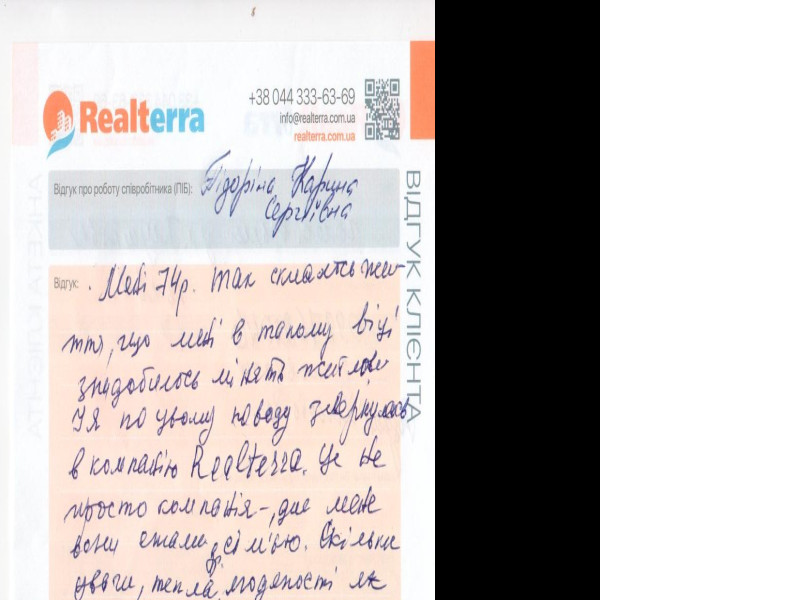 Realterra
+38 044 333-63-69
info@realterra.com.ua
realterra.com.ua
ВІДГУК КЛІЄНТА
Відгук про роботу співробітника (ПІБ):
Карина
Сергіївна
Відгук:
Мені 74р. Так склалось жит-
тя, що мені в такому віці
знадобилось мінять житло
І я по цьому поводу звернулась
в компанію Realterra. Це не
просто компанія-, для мене
вони стали сім'єю. Скільки
уваги, тепла, людяності як